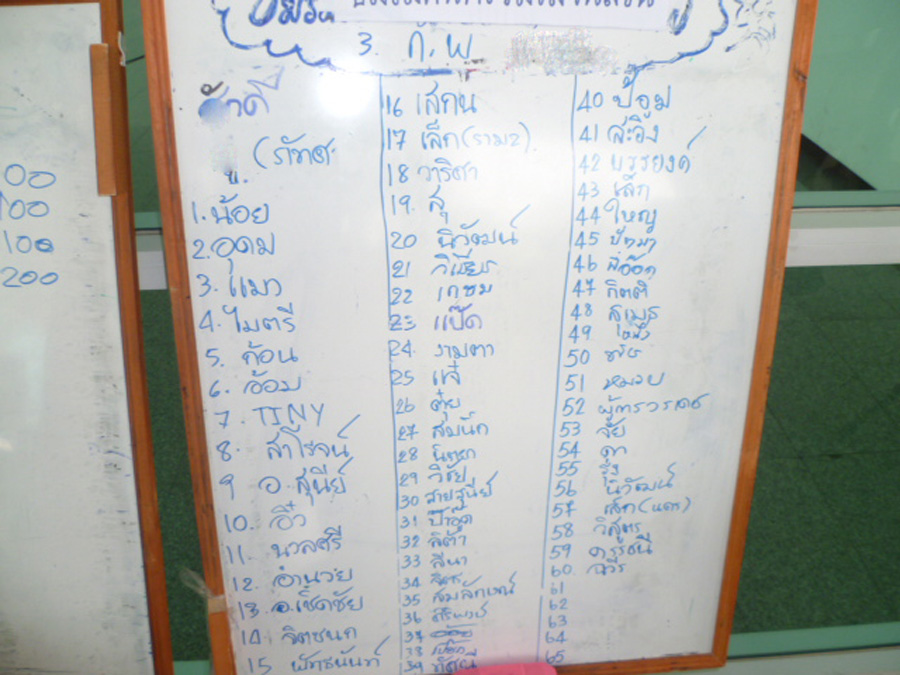 3. ก.พ
00
100
100
200
1. น้อย
2. อุดม
3. แมว
4. ไมตรี
5. ก้อน
6. อ้อม
7. TINY
8. สาโรจน์
9 อ. สุนีย์
10. อิ๋ว
11. นวลศรี
12. อำนวย
13. อ.เชิดชัย
14 จิตชนก
15 พัทธนันท์
16 เสกน
17 เล็ก(ราม2)
18 วาริศา
19. สุ
20 นิวัฒน์
21 วิเชียร
22 เกษม
23 แป๊ด
24. งามตา
25 แจ๋
26 ตุ๋ย
27 สมนึก
28
29 วิชัย
30 สายสุนีย์
31 ป้าอูด
32 ลิต้า
33 ลีนา
34
35 สมลักษณ์
36 ศิริพงษ์
37
38
39 ทัศนีย์
40 ป้อม
41 สะอิ้ง
42 บรรยงค์
43 เล็ก
44 ใหญ่
45 ปัทมา
46 ละออด
47 กิตติ
48 สุเมธ
49 หนึ่ง
50
51 หมวย
52
53 จัย
54 ดา
55 รุ่ง
56 นิวัฒน์
57 เล็ก(แดง)
58 วิสูตร
59 ดรรชนี
60. ฉวีร
61
62
63
64
65